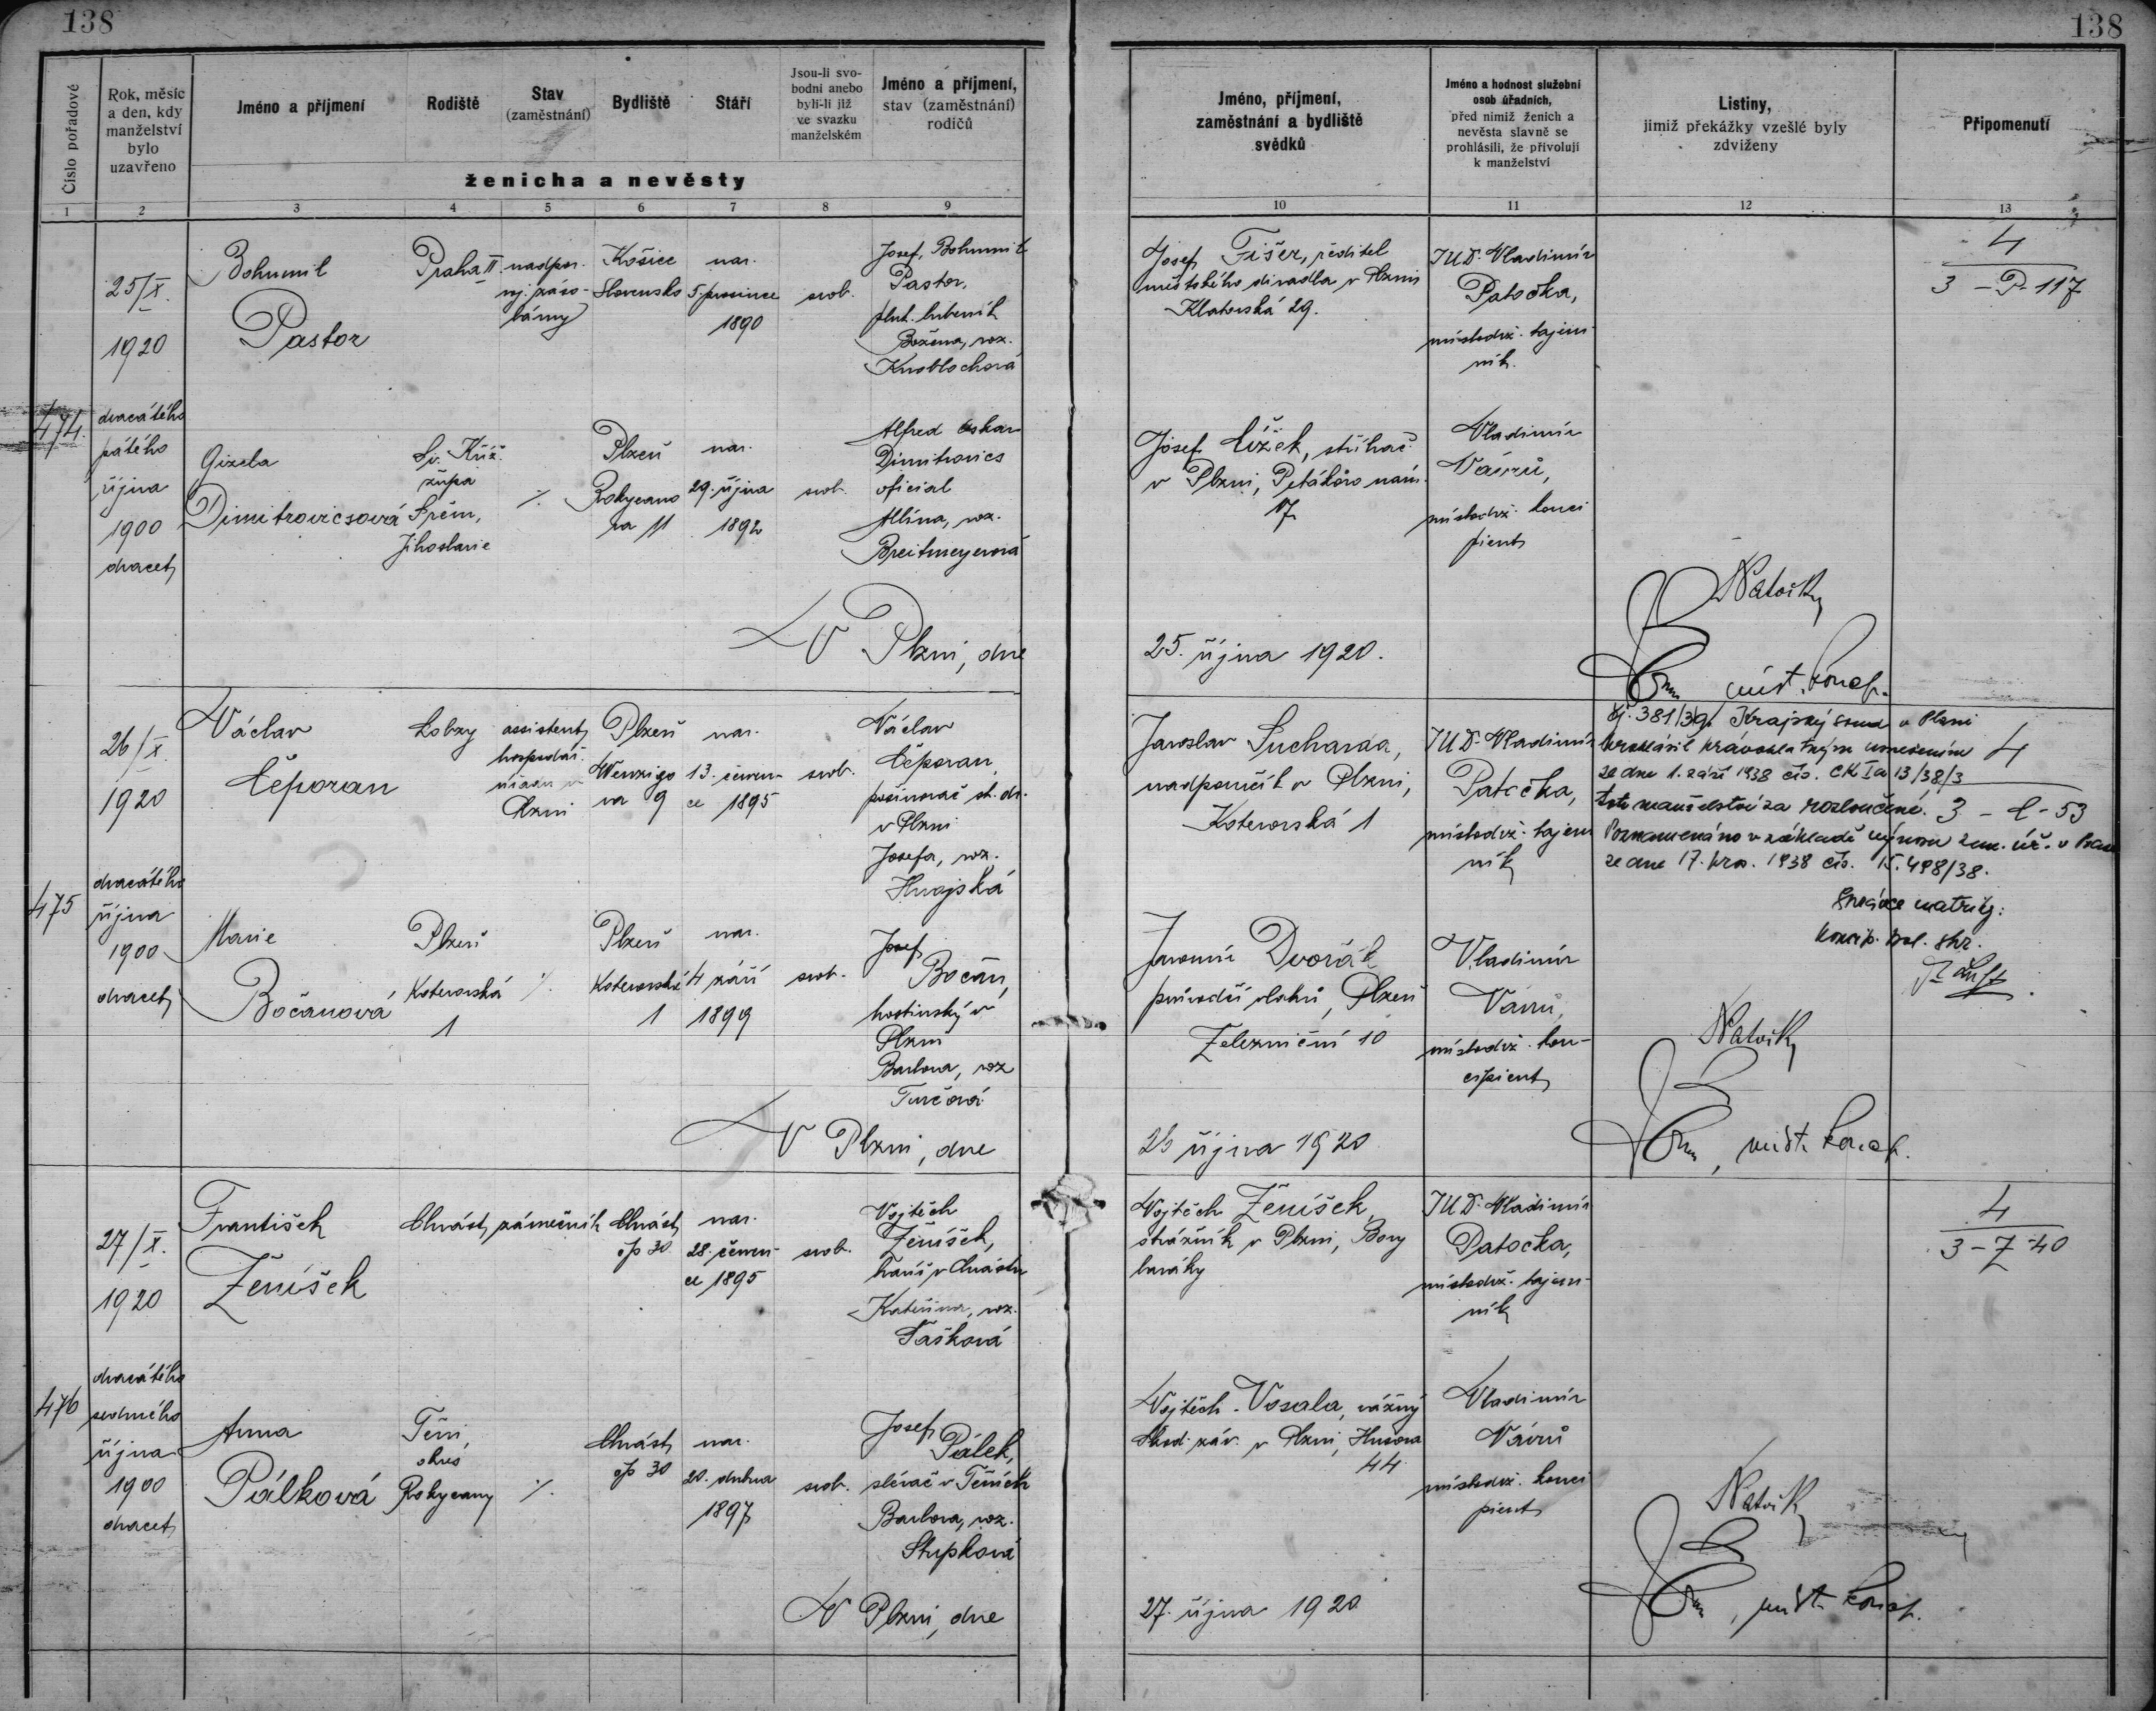 138
138
Číslo pořadové
Rok, měsíc
a den, kdy
manželství
bylo
uzavřeno
Jméno a příjmení
Rodiště
Stav
(zaměstnání)
Bydliště
Stáří
Jsou-li svo-
bodni anebo
byli-li již
ve svazku
manželském
Jméno a příjmení,
stav (zaměstnání)
rodičů
ženicha a nevěsty
Jméno, příjmení,
zaměstnání a bydliště
svědků
Jméno a hodnost služební
osob úřadních,
před nimiž ženich a
nevěsta slavně se
prohlásili, že přivolují
k manželství
Listiny,
jimiž překážky vzešlé byly
zdviženy
Připomenutí
1 2 3 4 5 6 7 8 9 10 11 12 13
474.
25/X.
1920
dvacátého
pátého
října
1900
dvacet
Bohumil
Pastor
Praha II.
nadpor.
voj. záso-
bárny
Košice
Slovensko
nar.
5. prosince
1890
svob.
Josef, Bohumil
Pastor,
Božena, roz.
Knoblochová
Gizela
Dimitrovicsová
Sv. Kříž
župa
Srěm,
Jihoslavie
%
Plzeň
Rokycano
va 11
nar.
29. října
1892
svob.
Alfred Oskar
Dimitrovics
oficial
Albína, roz.
Breitmeyerová
Josef Fišer, ředitel
městského divadla v Plzni
Klatovská 29.
JUDr. Vladimír
Patočka,
místodrž. tajem-
ník.
Josef Čížek, stříhač
v Plzni, Petákovo nám.
17
Vladimír
Vávrů,
místodrž. konci
pient
4
3 - P - 117
V Plzni, dne
25. října 1920.
míst. koncp.
475
26/X.
1920
dvacátého
října
1900
dvacet
Václav
Čeporan
Lobzy
assistent
hospodář.
úřadu v
Plzni
Plzeň
Wenzigo
va 9
nar.
13. červen-
ce 1895
svob.
Václav
Čeporan,
posunovač st. dr.
v Plzni
Josefa, roz.
Hnojská
Marie
Bočanová
Plzeň
Koterovská
1
%
Plzeň
Koterovská
1
nar.
4 září
1899
svob.
Josef
Bočan,
hostinský v
Plzni
Barbora, roz
Turčová
Jaroslav Sucharda,
nadporučík v Plzni,
Koterovská 1
JUDr. Vladimír
Patočka,
místodrž. tajem
ník
Jaromír Dvořák
průvodčí vlaků, Plzeň
Železniční 10
Vladimír
Vávrů,
místodrž. kon-
cipient
Čj. 381/39. Krajský soud v Plzni
prohlásil právoplatným usnesením
ze dne 1. září 1938 čís. CK Ia 13/38/3
toto manželství za rozloučené.
Poznamenáno v základě výnosu zem. úř. v Praze
ze dne 17. pros. 1938 čís. 15.498/38.
Správce matriky:
4
3 - Č - 53
V Plzni, dne
26 října 1920
míst. koncp.
476
27/X.
1920
dvacátého
sedmého
října
1900
dvacet
František
Ženíšek
Chrást
zámečník
Chrást
čp 30.
nar.
28. červen-
ce 1895
svob.
Vojtěch
Ženíšek,
havíř v Chrástu
Kateřina, roz.
Tašková
Anna
Pálková
Těni,
okres
Rokycany
%
Chrást
čp 30
nar.
20. dubna
1897
svob.
Josef
Pálek,
slévač v Těních
Barbora, roz.
Stupková
Vojtěch Ženíšek,
strážník v Plzni, Bory
baráky
JUDr. Vladimír
Patočka,
místodrž. tajem-
ník
Vojtěch Vosala, vážný
Škod. záv. v Plzni, Husova
44
Vladimír
Vávrů
místodrž. konci
pient
4
3 - Ž - 40
V Plzni, dne
27. října 1920
míst. koncp.